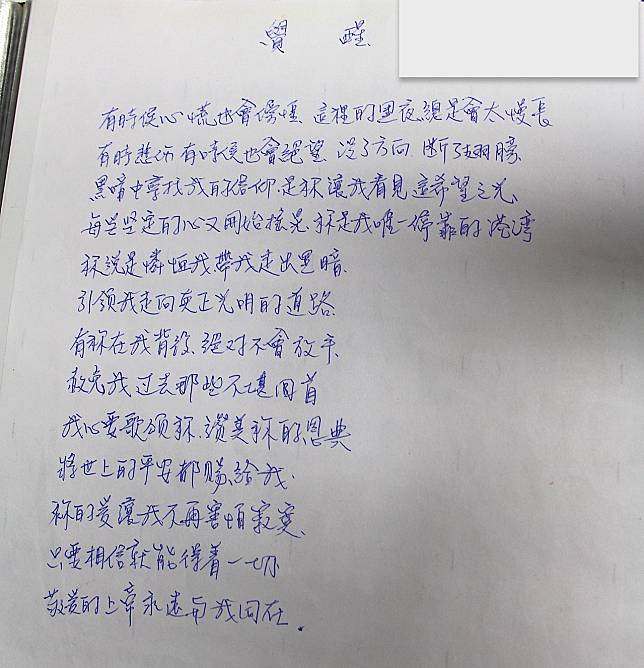 覺醒
有時從心慌也會傍惶 這裡的黑夜總是會太慢長
有時悲伤 有時候也會絕望 沒了方向 断了翅膀
黑暗中寻找我的信仰 是祢讓我看見這希望之光
每当坚定的心又開始摇晃 祢是我唯一停靠的港湾
祢説是憐恤我帶我走出黑暗
引领我走向真正光明的道路
有祢在我背後 絕对不會放手
赦免我过去那些不堪回首
我心要歌颂祢 讚美祢的恩典
將世上的平安都賜給我
祢的爱讓我不再害怕寂寞
只要相信就能得着一切
敬爱的上帝永遠与我同在.